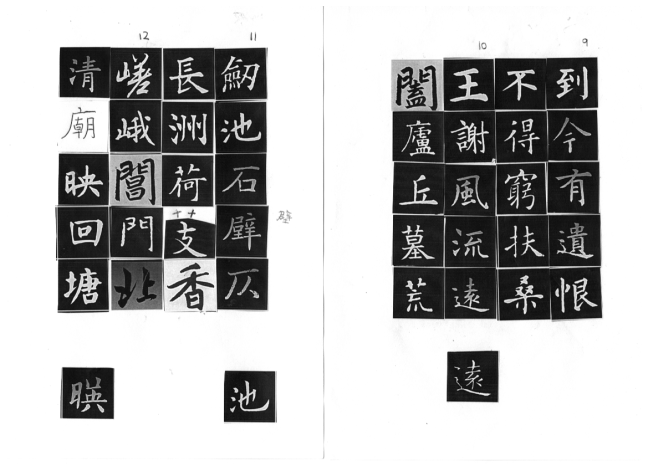 9
到今有遺恨
10
不得窮扶桑
王謝風流遠
闔廬丘墓荒
遠
11
劒池石壁仄
壁
長洲荷芰香
12
嵯峨閶門北
清廟映回塘
池
暎